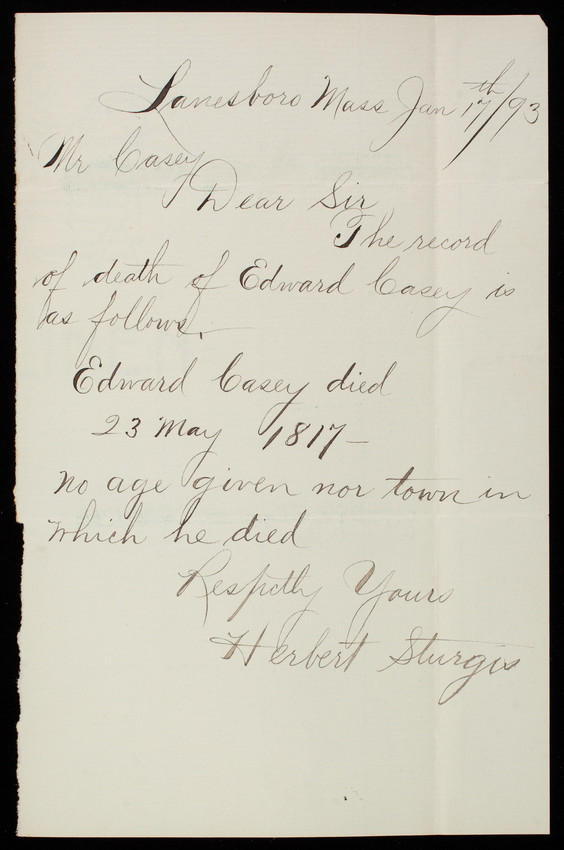 Lanesboro Mass Jan 17th/93
Mr Casey
Dear Sir
The record
of death of Edward Casey is
as follows.
Edward Casey died
23 May 1817—
no age given nor town in
which he died
Respctly Yours
Herbert Sturgis